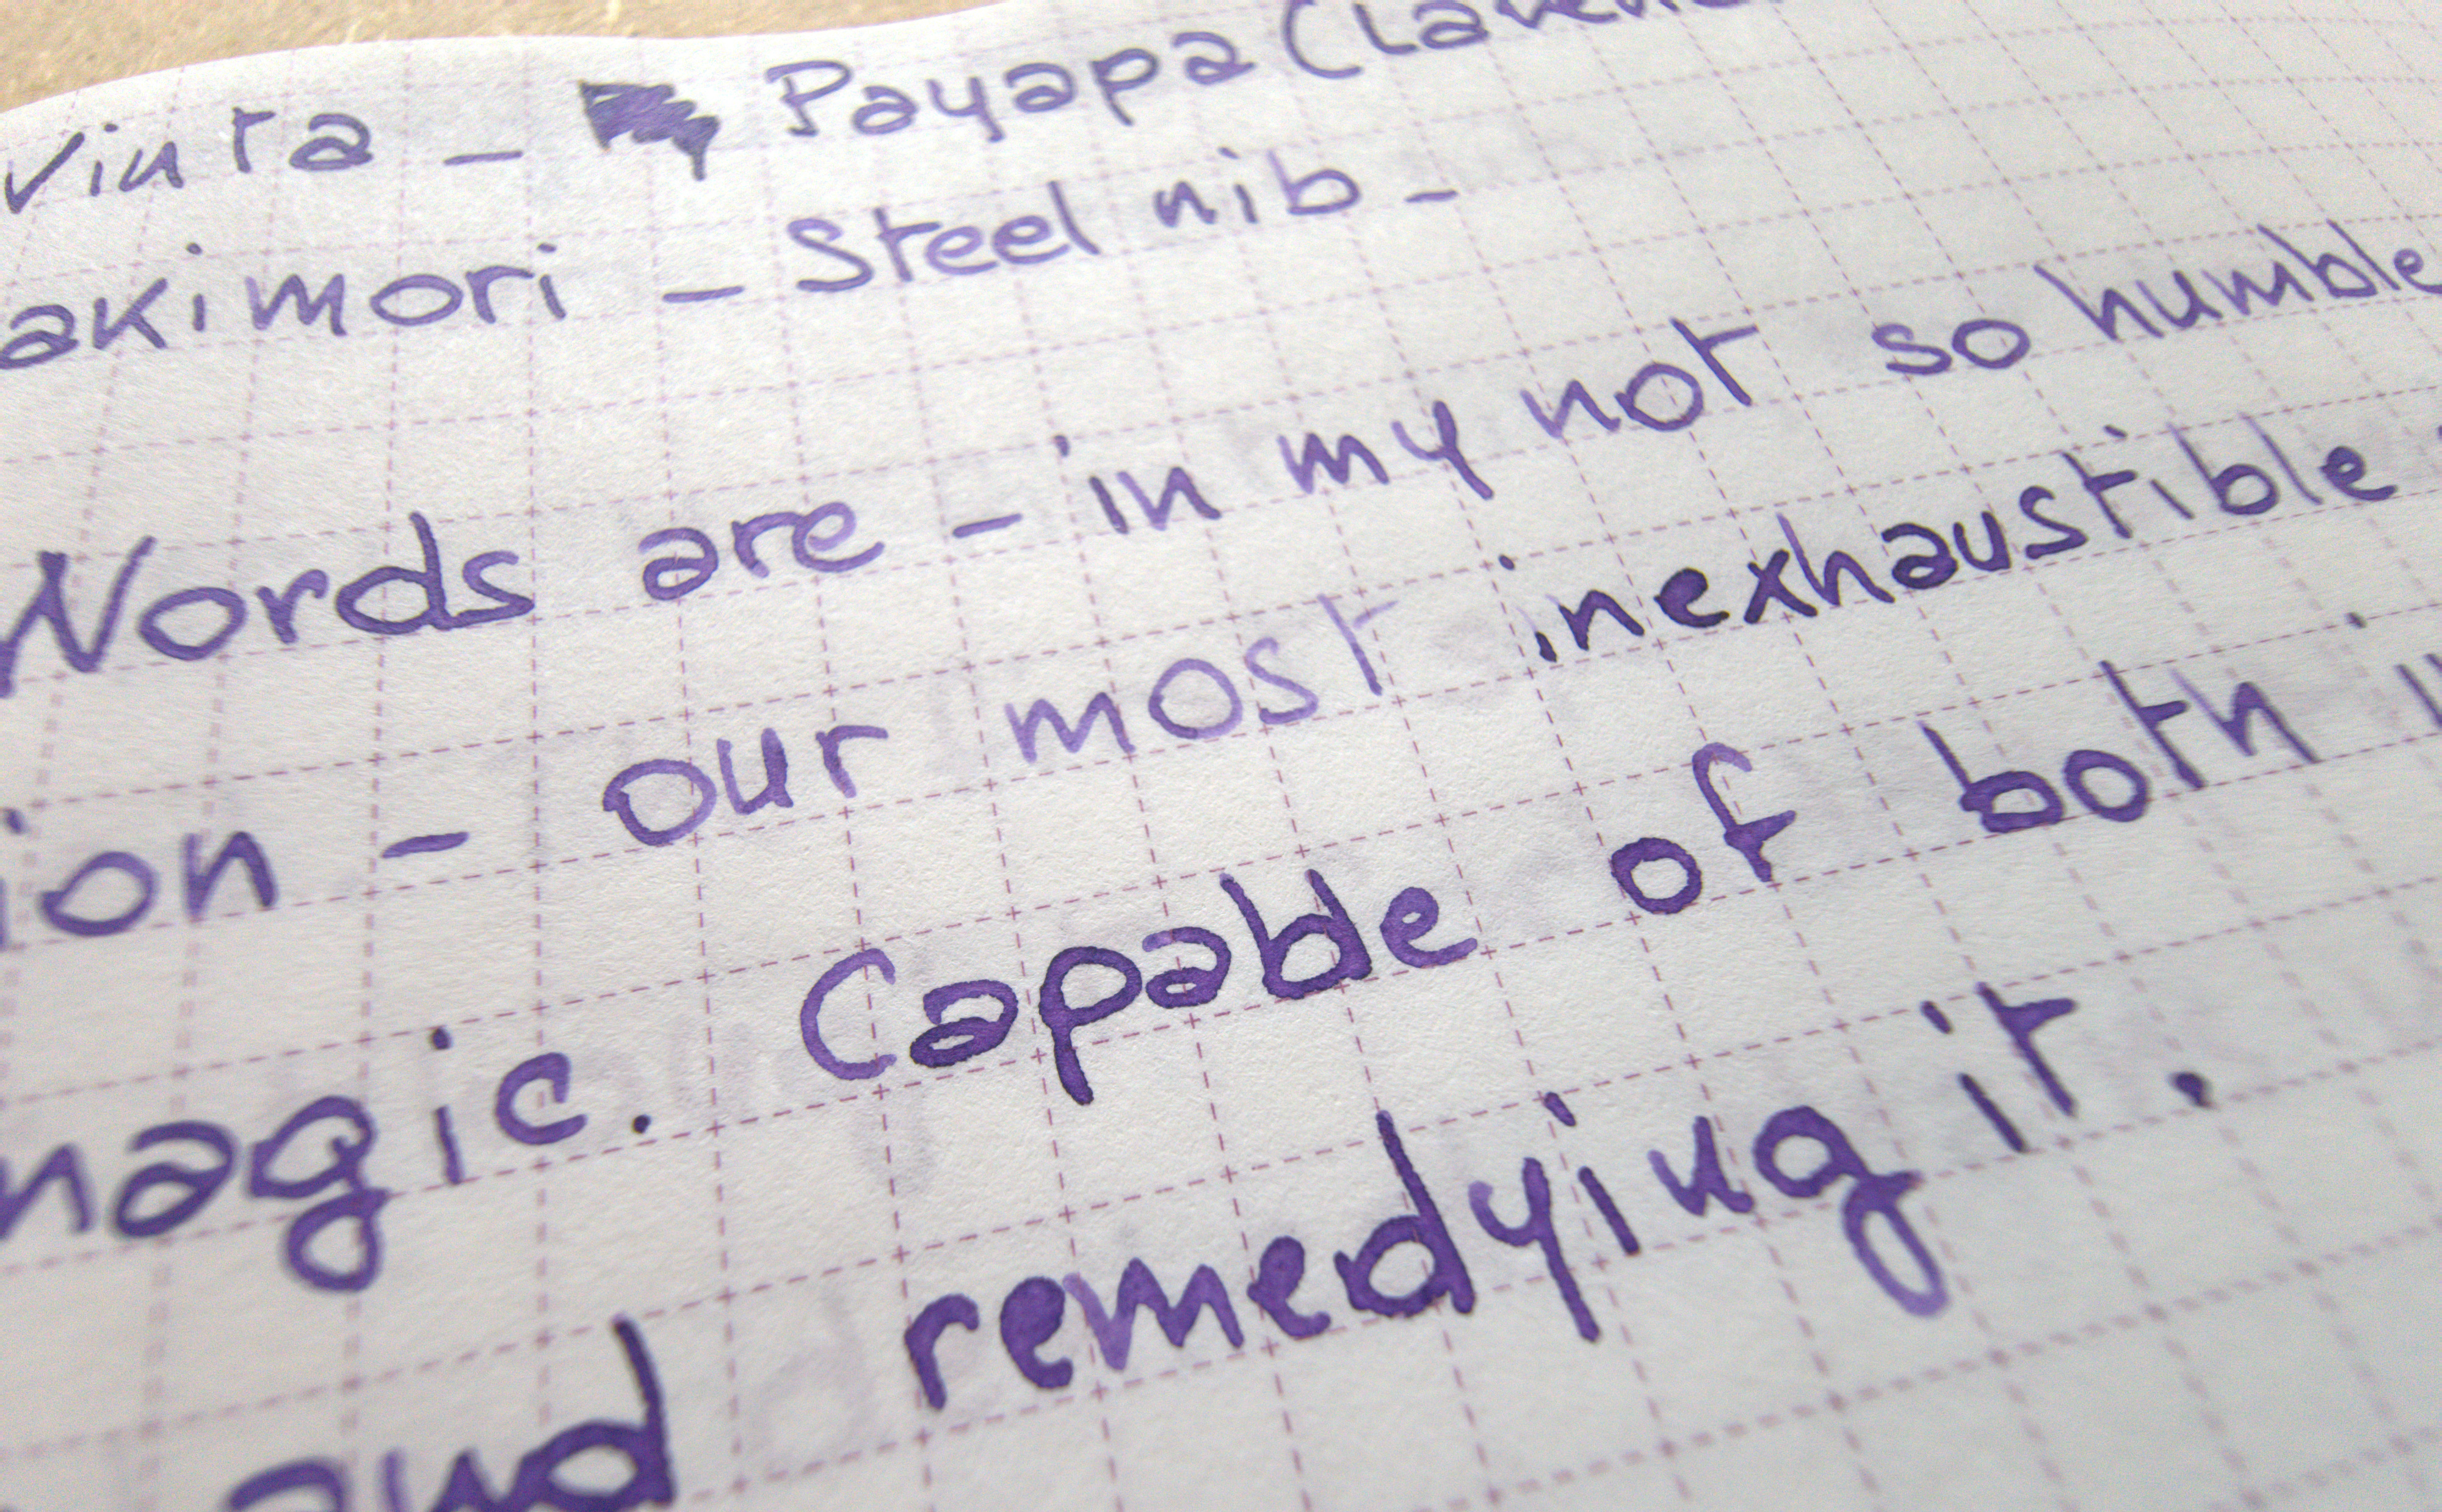 Vinta - Payapa (Laven
akimori - Steel nib -
Words are - in my not so humble
ion - our most inexhaustible
magic. Capable of both
and remedying it.